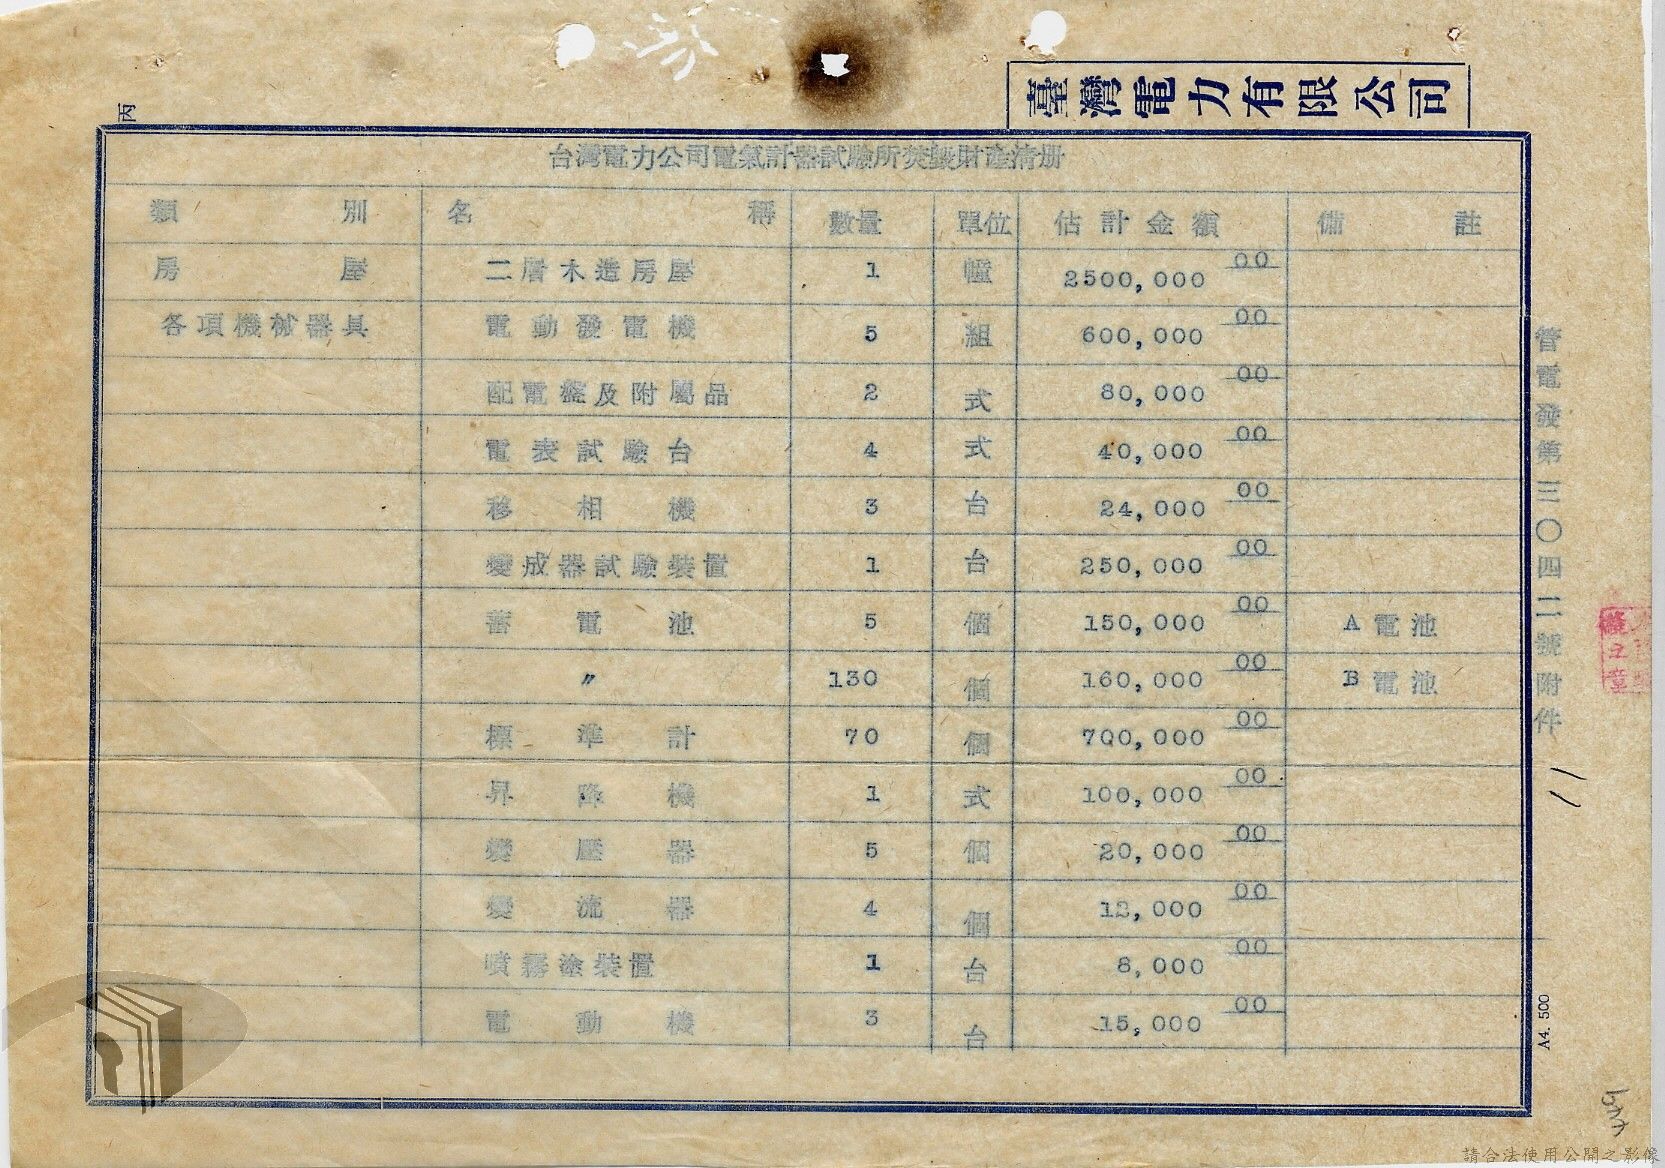 臺灣電力有限公司
丙
台灣電力公司電氣計器試驗所焚毀財產清册
類別 名稱 數量 單位 估計金額 備註
房屋 二層木造房屋 1 幢 2500,000 00
各項機械器具 電動發電機 5 組 600,000 00
配電盤及附屬品 2 式 80,000 00
電表試驗台 4 式 40,000 00
移相機 3 台 24,000 00
變成器試驗裝置 1 台 250,000 00
蓄電池 5 個 150,000 00 A電池
〃 130 個 160,000 00 B電池
標準計 70 個 700,000 00
昇降機 1 式 100,000 00
變壓器 5 個 20,000 00
變流器 4 個 12,000 00
噴霧塗裝置 1 台 8,000 00
電動機 3 台 15,000 00
管電發第三〇四二號附件
A4. 500
請合法使用公開之影像